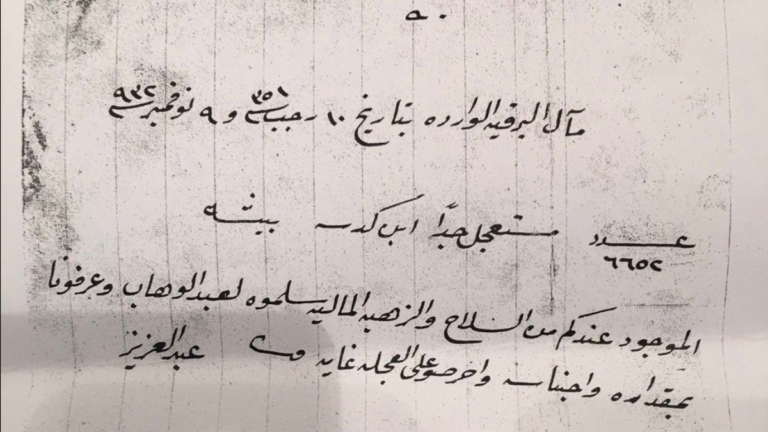 ٩٠
مآل البرقيه الوارده بتاريخ ١٠ رجب سنة ٣٥١ و ٩ نوفمبر سنة ٩٣٢
عدد ٦٦٥٢ مستعجل جداً ابن كدسه بيشه
الموجود عندكم من السلاح والزهبه الماليه سلموه لعبدالوهاب وعرفونا
بمقداره واجناسه واحرصو على العجله غايه عبدالعزيز